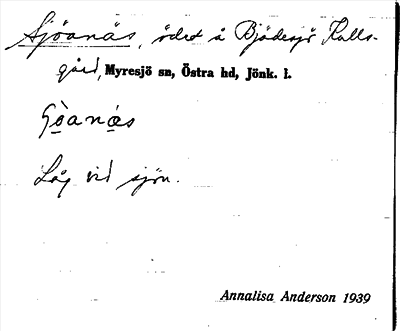 Sjöanäs, ödet å Bjädesjö Kulls-
gård, Myresjö sn, Östra hd, Jönk. l.
Låg vid sjön.
Annalisa Anderson 1939